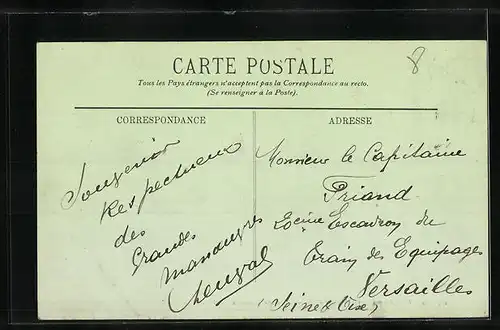 8
CARTE POSTALE
Tous les Pays étrangers n'acceptent pas la Correspondance au recto.
(Se renseigner à la Poste).
CORRESPONDANCE
Souvenir
Respectueux
des
Grandes
manœuvres
ADRESSE
Monsieur le Capitaine
Friand
20eme Escadron du
Train des Equipages
Versailles
(Seine & Oise)